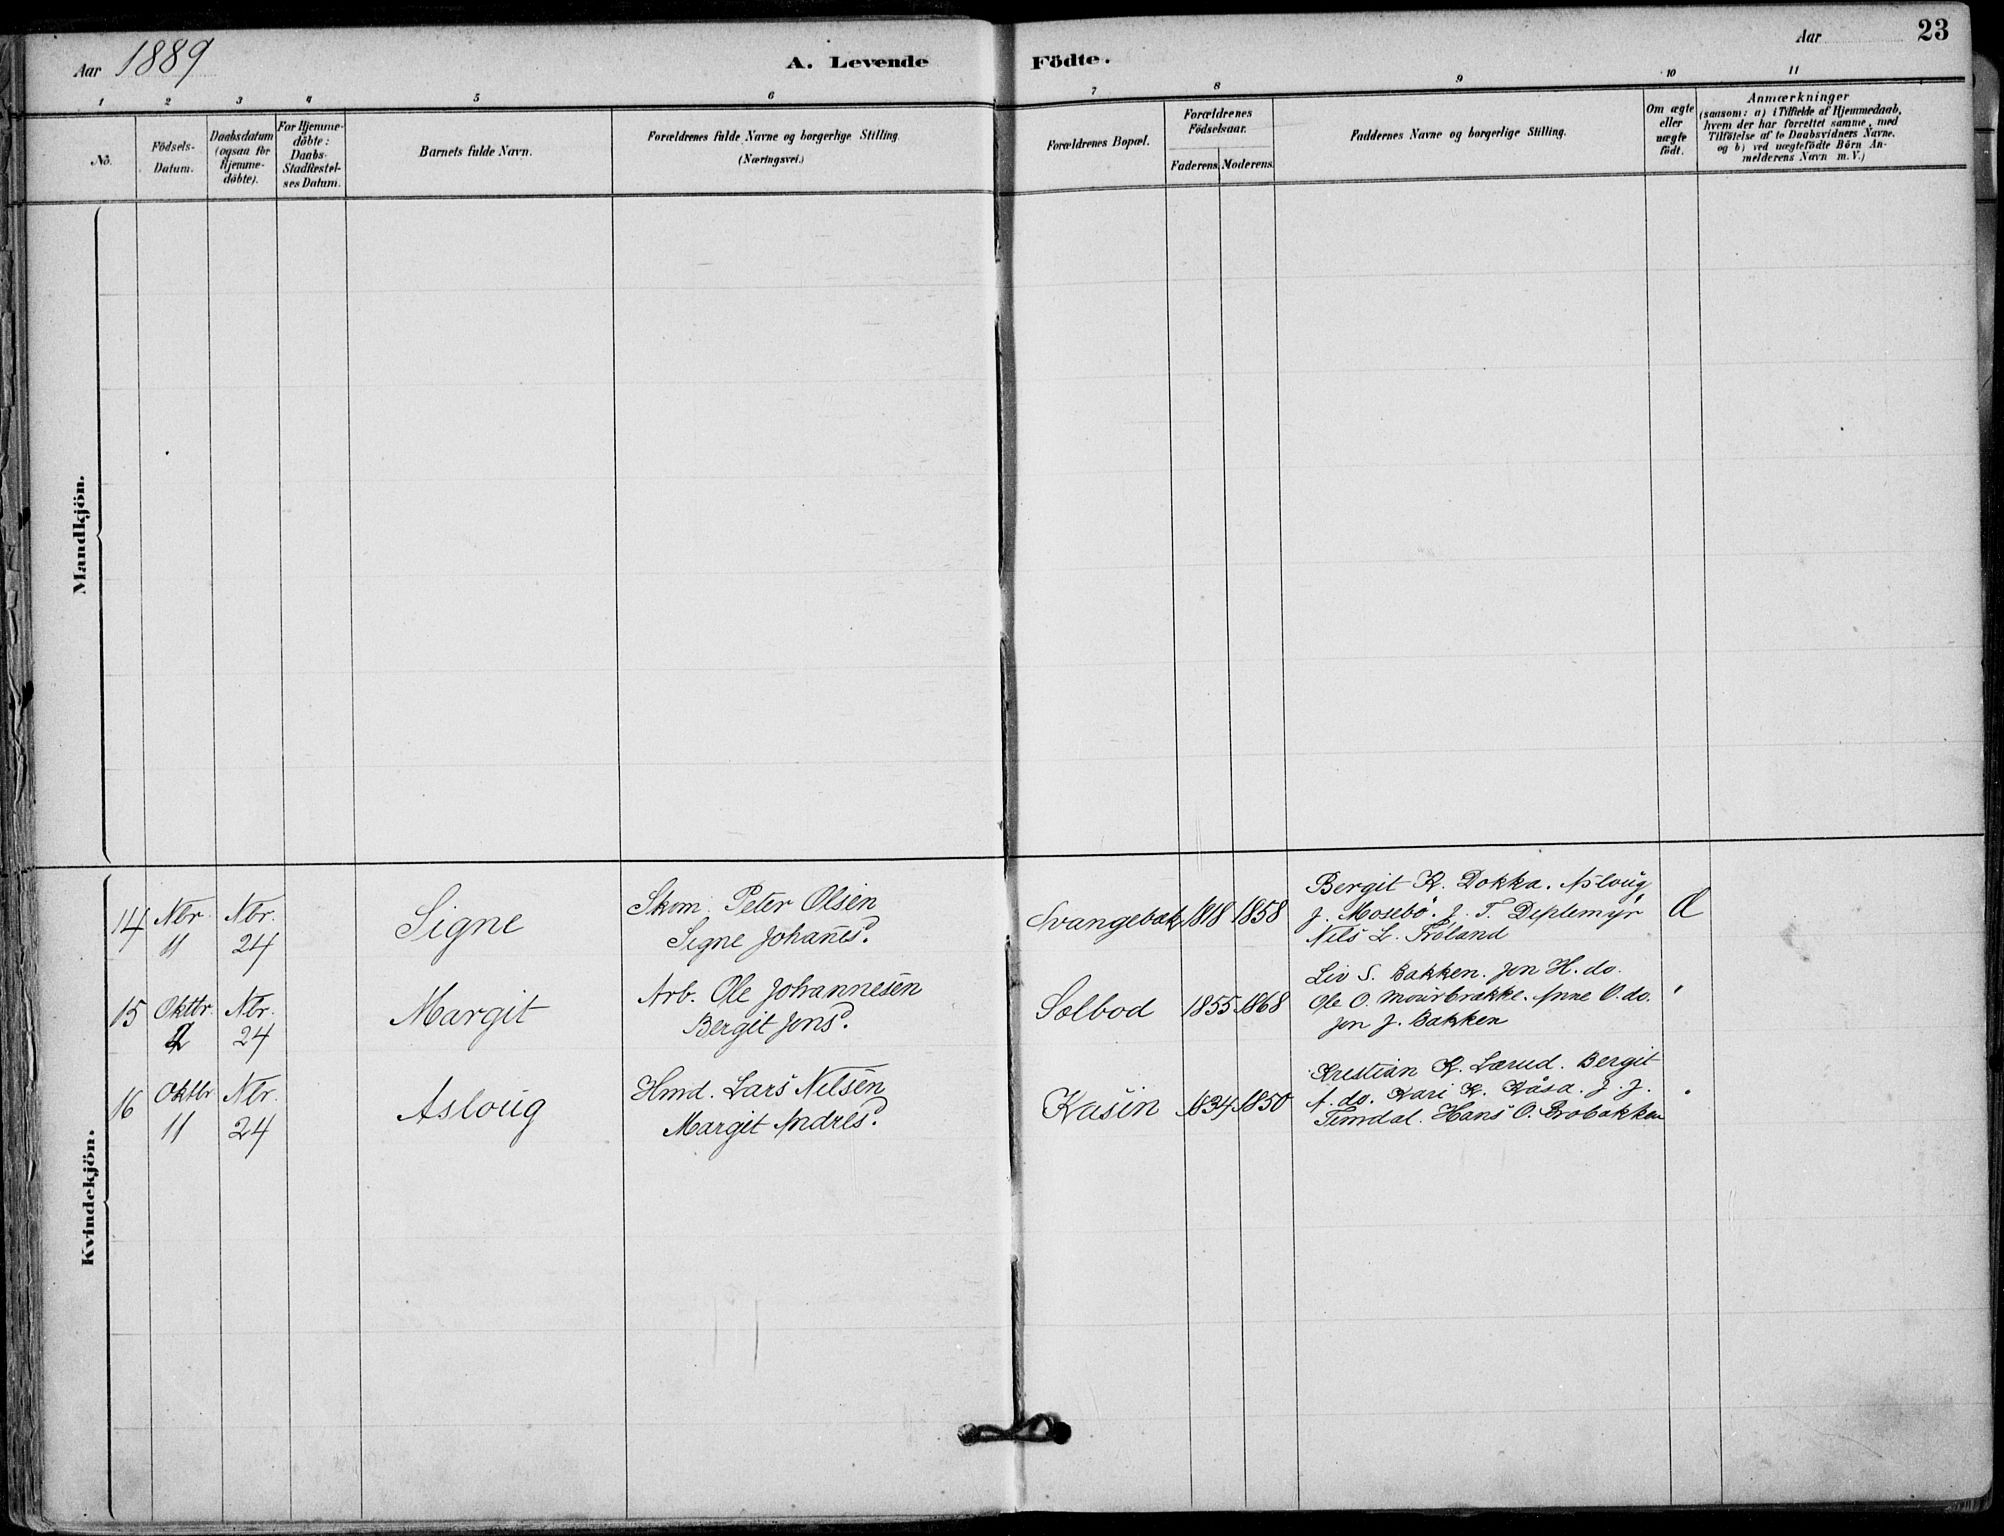 Aar 1889
A. Levende
Födte.
Aar
23
1 2 3 4 5 6 7 8 9 10 11
No.
Födsels-
Datum.
Daabsdatum
(ogsaa for
Hjemme-
döbte).
For Hjemme-
döbte:
Daabs-
Stadfæstel-
ses Datum.
Barnets fulde Navn.
Forældrenes fulde Navne og borgerlige Stilling
(Næringsvei.)
Forældrenes Bopæl.
Forældrenes
Födselsaar.
Faderens. Moderens.
Faddernes Navne og borgerlige Stilling.
Om ægte
eller
uægte
födt.
Anmærkninger
(saasom: a) i Tilfælde af Hjemmedaab,
hvem der har forrettet samme, med
Tilföielse af to Daabsvidners Navne.
og b) ved uægtefödte Börn An-
melderens Navn m. V.)
Mandkjön.
Kvindekjön.
14
Nbr.
11
Nbr.
24
Signe
Skom. Peter Olsen
Signe Johanesd.
Svangebæk
1818 1858
Bergit K. Dokka. Asloug
J. Mosebö. J. T. Deplemyr
Nils L. Tröland
Æ
15
Oktbr.
Nbr.
24
Margit
Arb. Ole Johannesen
Bergit Jonsd.
Solbod
1855 1868
Liv S. Bakken. Jon H. do.
Ole O. Mourbrække. Anne O. do.
Jon J. Bakken
"
16
Oktbr
11
Nbr.
24
Asloug
Hmd. Lars Nilsen
Margit Andresd.
Kasin
1834 1850
Kristian K. Lærud. Bergit
A. do. Kari K. Råsa. J. J.
Timdal. Hans O. Brobakken
"